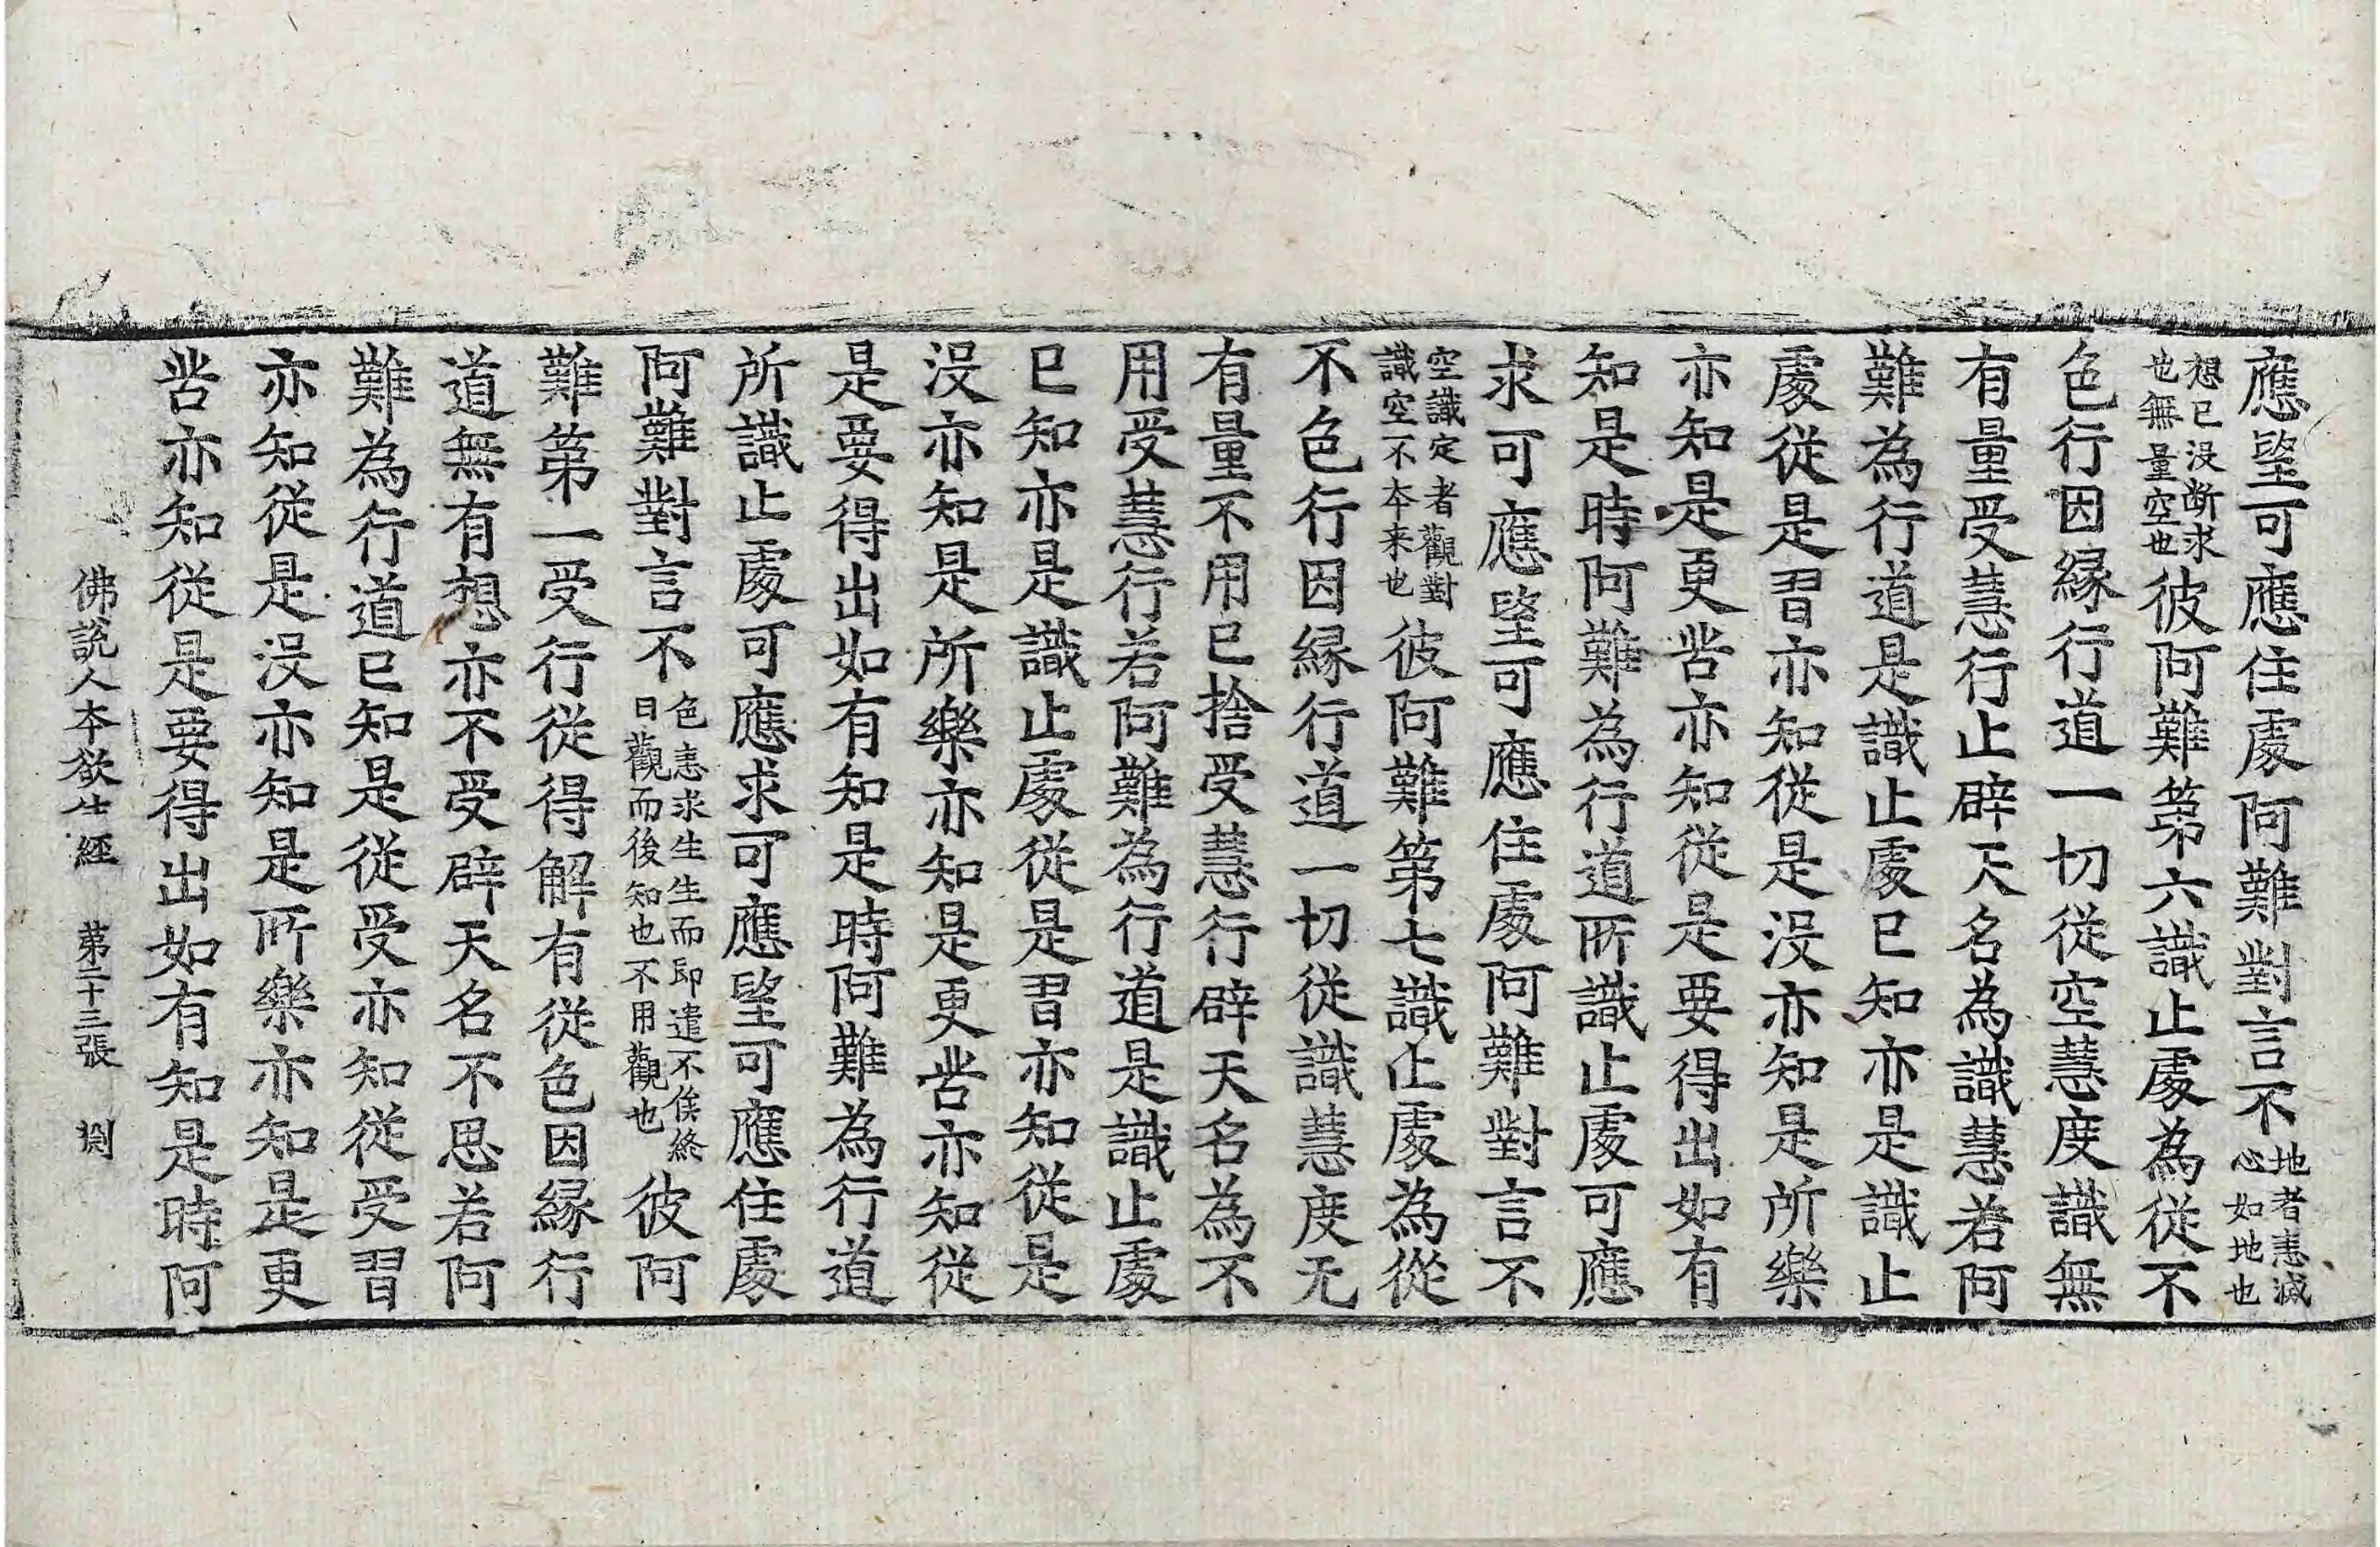 應望可應住處阿難對言不地者恚滅心如地也
想已沒断求也無量空也彼阿難第六識止處為從不
色行因縁行道一切從空慧度識無
有量受慧行止辟天名為識慧若阿
難為行道是識止處已知亦是識止
處從是習亦知從是沒亦知是所樂
亦知是更苦亦知從是要得出如有
知是時阿難為行道所識止處可應
求可應望可應住處阿難對言不
空識定者觀對識空不本来也彼阿難第七識止處為從
不色行因縁行道一切從識慧度无
有量不用已捨受慧行辟天名為不
用受慧行若阿難為行道是識止處
已知亦是識止處從是習亦知從是
沒亦知是所樂亦知是更苦亦知從
是要得出如有知是時阿難為行道
所識止處可應求可應望可應住處
阿難對言不色恚求生生而即遣不俟終日觀而後知也不用觀也彼阿
難第一受行從得解有從色因縁行
道無有想亦不受辟天名不思若阿
難為行道已知是從受亦知從受習
亦知從是沒亦知是所樂亦知是更
苦亦知從是要得出如有知是時阿
佛說人本欲生經 第二十三張